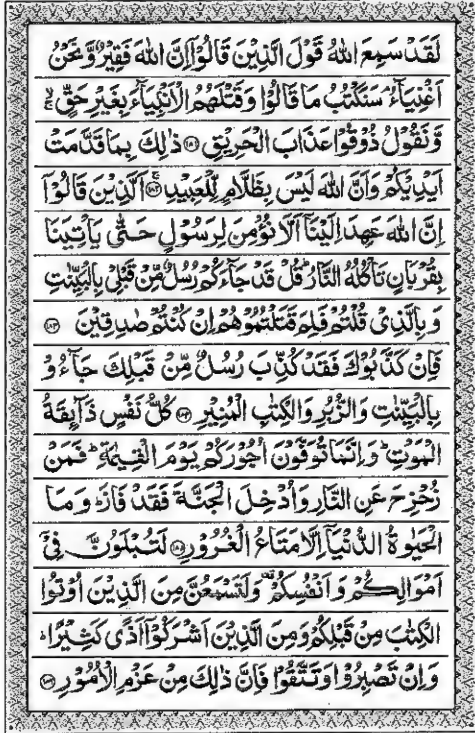 لَقَدْ سَمِعَ اللّٰهُ قَوْلَ الَّذِيْنَ قَالُوْۤا اِنَّ اللّٰهَ فَقِيْرٌ وَّنَحْنُ
اَغْنِيَآءُ ۘ سَنَكْتُبُ مَا قَالُوْا وَقَتْلَهُمُ الْاَنْۢبِيَآءَ بِغَيْرِ حَقٍّ ۙ
وَّنَقُوْلُ ذُوْقُوْا عَذَابَ الْحَرِيْقِ ﴿۱۸۱﴾ ذٰلِكَ بِمَا قَدَّمَتْ
اَيْدِيْكُمْ وَاَنَّ اللّٰهَ لَيْسَ بِظَلَّامٍ لِّلْعَبِيْدِ ﴿۱۸۲﴾ اَلَّذِيْنَ قَالُوْۤا
اِنَّ اللّٰهَ عَهِدَ اِلَيْنَاۤ اَلَّا نُؤْمِنَ لِرَسُوْلٍ حَتّٰى يَاْتِيَنَا
بِقُرْبَانٍ تَاْكُلُهُ النَّارُ ؕ قُلْ قَدْ جَآءَكُمْ رُسُلٌ مِّنْ قَبْلِيْ بِالْبَيِّنٰتِ
وَبِالَّذِيْ قُلْتُمْ فَلِمَ قَتَلْتُمُوْهُمْ اِنْ كُنْتُمْ صٰدِقِيْنَ ﴿۱۸۳﴾
فَاِنْ كَذَّبُوْكَ فَقَدْ كُذِّبَ رُسُلٌ مِّنْ قَبْلِكَ جَآءُوْ
بِالْبَيِّنٰتِ وَالزُّبُرِ وَالْكِتٰبِ الْمُنِيْرِ ﴿۱۸۴﴾ كُلُّ نَفْسٍ ذَآئِقَةُ
الْمَوْتِ ؕ وَاِنَّمَا تُوَفَّوْنَ اُجُوْرَكُمْ يَوْمَ الْقِيٰمَةِ ؕ فَمَنْ
زُحْزِحَ عَنِ النَّارِ وَاُدْخِلَ الْجَنَّةَ فَقَدْ فَازَ ؕ وَمَا
الْحَيٰوةُ الدُّنْيَاۤ اِلَّا مَتَاعُ الْغُرُوْرِ ﴿۱۸۵﴾ لَتُبْلَوُنَّ فِيْۤ
اَمْوَالِكُمْ وَاَنْفُسِكُمْ ۫ وَلَتَسْمَعُنَّ مِنَ الَّذِيْنَ اُوْتُوا
الْكِتٰبَ مِنْ قَبْلِكُمْ وَمِنَ الَّذِيْنَ اَشْرَكُوْۤا اَذًى كَثِيْرًا ؕ
وَاِنْ تَصْبِرُوْا وَتَتَّقُوْا فَاِنَّ ذٰلِكَ مِنْ عَزْمِ الْاُمُوْرِ ﴿۱۸۶﴾